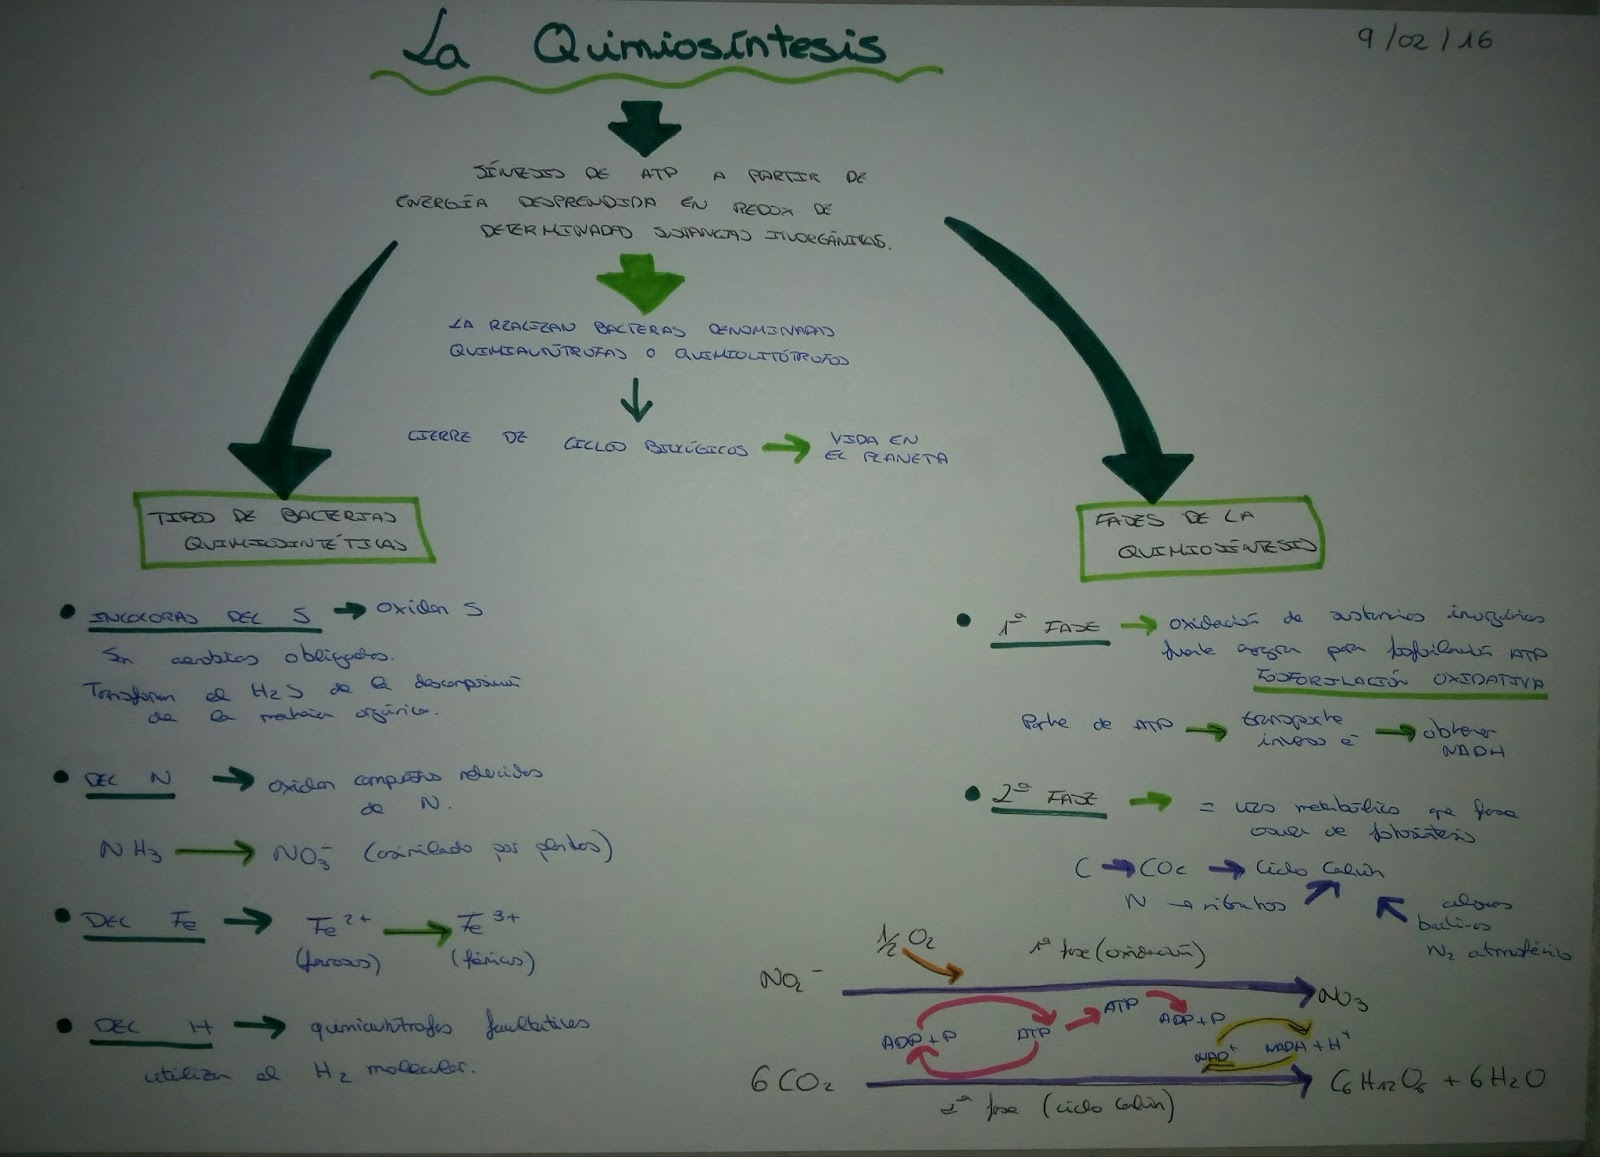 La Quimiosíntesis
9/02/16
SÍNTESIS DE ATP A PARTIR DE
ENERGÍA DESPRENDIDA EN REDOX DE
DETERMINADAS SUSTANCIAS INORGÁNICAS.
LA REALIZAN BACTERAS DENOMINADAS
QUIMIAUTÓTROFAS O QUIMIOLITÓTROFOS
CIERRE DE CICLOS BIOLÓGICOS → VIDA EN
EL PLANETA
TIPOS DE BACTERIAS
QUIMIOSINTÉTICAS
• INCOLORAS DEL S → oxidan S
Son aerobias obligadas.
Transforman el H2S de la descomposición
de la materia orgánica.
• DEL N → oxidan compuestos reducidos
de N.
NH3 → NO3- (asimilado por plantas)
• DEL Fe → Fe2+ → Fe3+
(ferrosos) (férricos)
• DEL H → quimioautótrofos facultativos
utilizan el H2 molecular.
FASES DE LA
QUIMIOSÍNTESIS
• 1ª FASE → oxidación de sustancias inorgánicas
fuente energía para fosforilación ATP
FOSFORILACIÓN OXIDATIVA
Parte de ATP → transporte
inverso é → obtener
NADH
• 2ª FASE → = uso metabólico que fase
oscura de fotosíntesis
C → CO2 → Ciclo Calvin
N → nitratos
bacterias
N2 atmosférico
1/2 O2
1ª fase (oxidación)
NO2- → NO3
ADP+P ATP ATP ADP+P
NAD+ NADH + H+
6CO2 → C6H12O6 + 6H2O
2ª fase (ciclo Calvin)